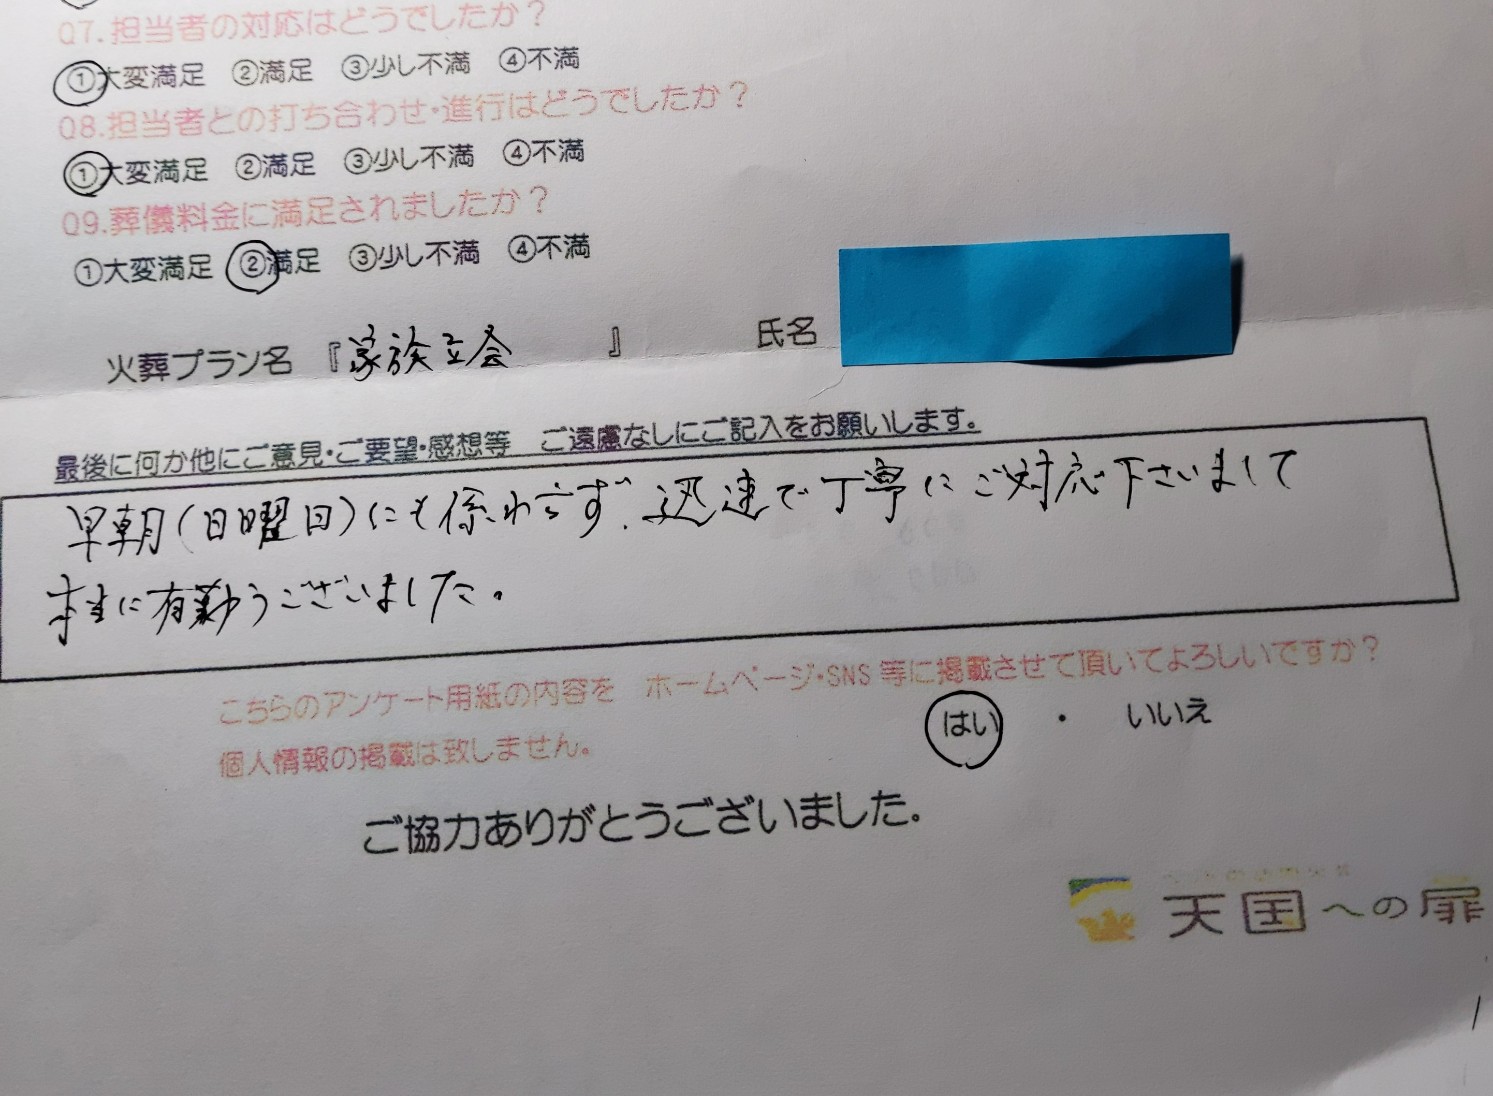 Q7.担当者の対応はどうでしたか？
①大変満足 ②満足 ③少し不満 ④不満
Q8.担当者との打ち合わせ・進行はどうでしたか？
①大変満足 ②満足 ③少し不満 ④不満
Q9.葬儀料金に満足されましたか？
①大変満足 ②満足 ③少し不満 ④不満
火葬プラン名 『家族立会 』 氏名
最後に何か他にご意見・ご要望・感想等 ご遠慮なしにご記入をお願いします。
早朝(日曜日)にも係わらず、迅速で丁寧にご対応下さいまして
本当に有難うございました。
こちらのアンケート用紙の内容を ホームページ・SNS 等に掲載させて頂いてよろしいですか？
個人情報の掲載は致しません。 はい ・ いいえ
ご協力ありがとうございました。
天国への扉